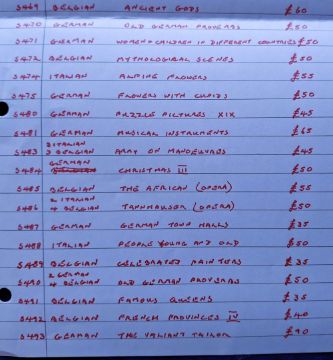 S469 BELGIAN ANCIENT GODS £60
S470 GERMAN OLD GERMAN PROVERBS £50
S471 GERMAN WOMEN + CHILDREN IN DIFFERENT COUNTRIES £50
S472 BELGIAN MYTHOLOGICAL SCENES £50
S474 ITALIAN ALPINE FLOWERS £55
S475 GERMAN FLOWERS WITH CUPIDS £50
S480 GERMAN PUZZLE PICTURES XIX £45
S481 GERMAN MUSICAL INSTRUMENTS £65
S483 3 ITALIAN 3 BELGIAN ARMY ON MANOEUVRES £45
S484 GERMAN CHRISTMAS III £50
S485 BELGIAN THE AFRICAN (OPERA) £55
S486 2 ITALIAN 4 BELGIAN TANNHAUSER (OPERA) £50
S487 GERMAN GERMAN TOWN HALLS £35
S488 ITALIAN PEOPLE YOUNG AND OLD £50
S489 BELGIAN CELEBRATED PAINTERS £35
S490 2 GERMAN 4 BELGIAN OLD GERMAN PROVERBS £50
S491 BELGIAN FAMOUS QUEENS £35
S492 BELGIAN FRENCH PROVINCES IV £40
S493 GERMAN THE VALIANT TAILOR £90